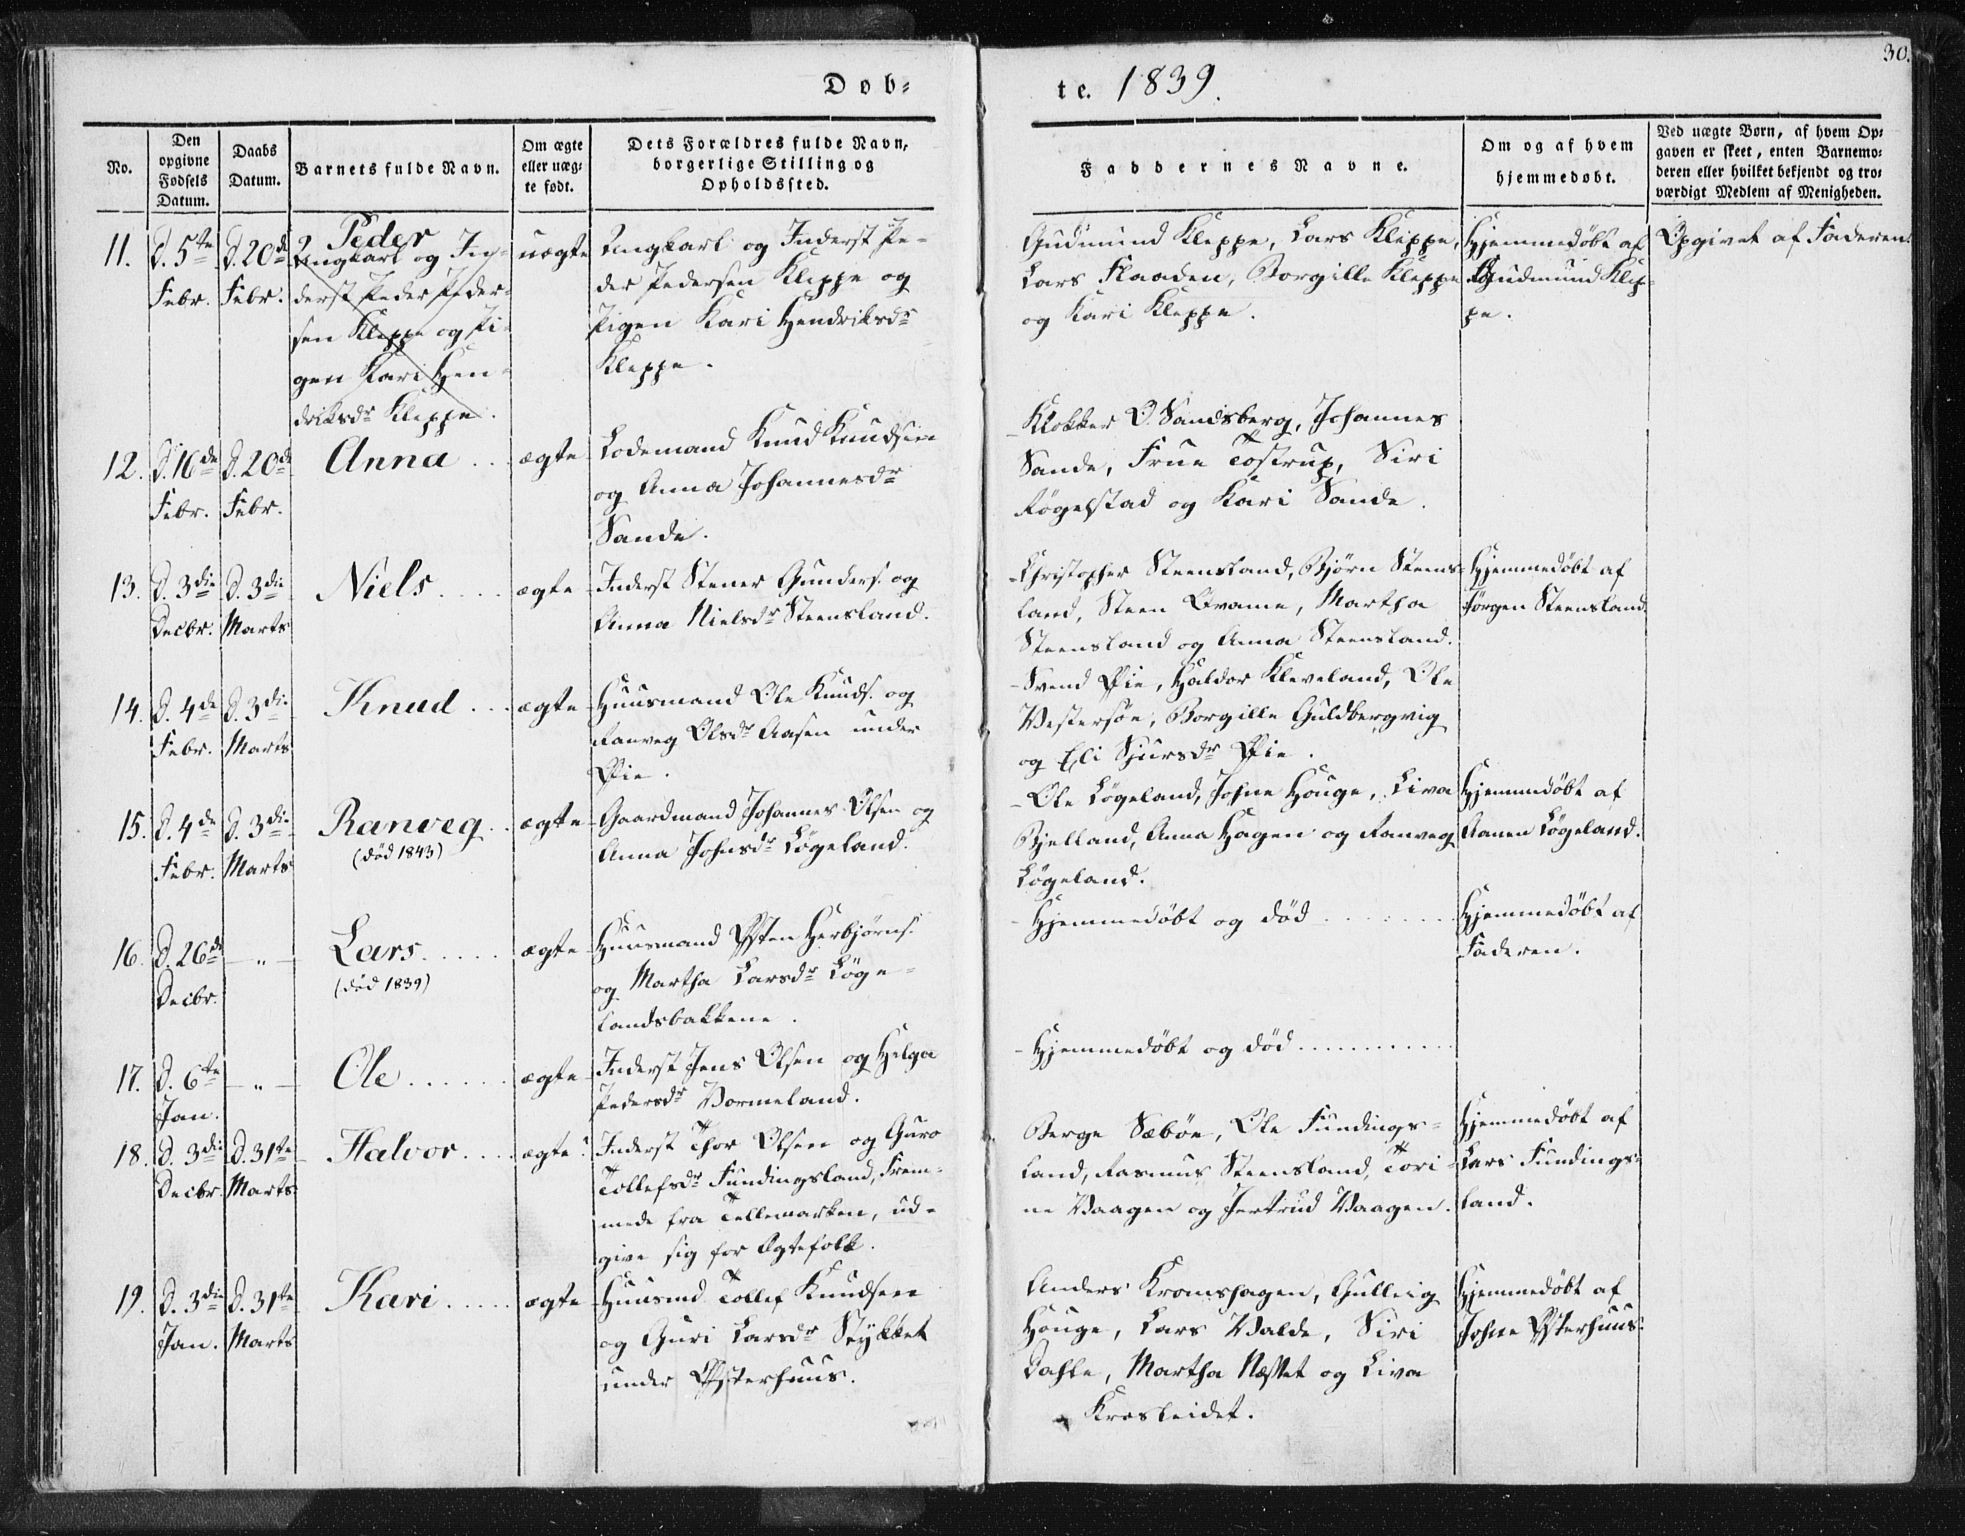 30.
Døb-
te. 1839.
No.
Den opgivne Fødsels Datum.
Daabs Datum.
Barnets fulde Navn.
Om ægte eller uæg-
te født.
Dets Forældres fulde Navn,
borgerlige Stilling og
Opholdssted.
Faddernes Navne.
Om og af hvem
hjemmedøbt.
Ved uægte Børn, af hvem Op-
gaven er skeet, enten Barnemo-
deren eller hvilket bekjendt og tro-
værdigt Medlem af Menigheden.
11. D. 5te Febr.
D. 20de Febr.
Peder
Ungkarl og In-
derst Peder Peder-
sen Kleppe og Pi-
gen Kari Hen-
driksdr Kleppe.
uægte
Ungkarl og Inderst Pe-
der Pedersen Kleppe og
Pigen Kari Hendriksdr
Kleppe.
Gudmund Kleppe, Lars Kleppe,
Lars Flaaden, Borgille Kleppe
og Kari Kleppe.
Hjemmedøbt af
Gudmund Klep-
pe.
Opgivet af Faderen.
12. D. 16de Febr.
D. 20de Febr.
Anna
ægte
Lodsmand Knud Knudsen
og Anna Johannesdr
Sande.
Klokker O. Sandsberg, Johannes
Sande, Frue Tostrup, Siri
Røgelstad og Kari Sande.
13. D. 3die Decbr.
D. 3die Marts
Niels
ægte
Inderst Stener Gunders. og
Anna Nielsdr Steensland.
Christopher Steensland, Bjørn Steens-
land, Steen Qvame, Martha
Steensland og Anna Steensland.
Hjemmedøbt af
Jørgen Steensland.
14. D. 4de Febr.
D. 3die Marts
Knud
ægte
Huusmand Ole Knuds. og
Ranveg Olsdr Aasen under
Øie.
Svend Øie, Haldor Kleveland, Ole
Vestersøe, Borgille Guldbergvig
og Eli Sjursdr Øie.
15. D. 4de Febr.
D. 3die Marts
Ranveg
(død 1843)
ægte
Gaardmand Johannes Olsen og
Anna Johnsdr Løgeland.
Ole Løgeland, Johne Houge, Liva
Bjelland, Anna Hagen og Ranveg
Løgeland.
Hjemmedøbt af
Aanen Løgeland.
16. D. 26de Decbr.
— „ —
Lars
(død 1839)
ægte
Huusmand Østen Herbjørns.
og Martha Larsdr Løge-
landsbakkene.
Hjemmedøbt og død
Hjemmedøbt af
Faderen.
17. D. 6te Jan.
— „ —
Ole
ægte
Inderst Jens Olsen og Helga
Pedersdr Vormeland.
Hjemmedøbt og død
18. D. 3die Decbr.
D. 31te Marts
Halvor
ægte?
Inderst Thor Olsen og Guro
Tollefsdr Fundingsland, Frem-
mede fra Tellemarken, ud-
give sig for Ægtefolk.
Berge Sæbøe, Ole Fundings-
land, Rasmus Steensland, Tori-
ne Vaagen og Jertrud Vaagen.
Hjemmedøbt af
Lars Fundings-
land.
19. D. 3die Jan.
D. 31te Marts
Kari
ægte
Huusmd. Tollef Knudsen
og Guri Larsdr Stykket
under Østerhuus.
Anders Kromshagen, Gulleig
Houge, Lars Valde, Siri
Dahle, Martha Næsset og Liva
Krosleidet.
Hjemmedøbt af
Johne Østerhuus.